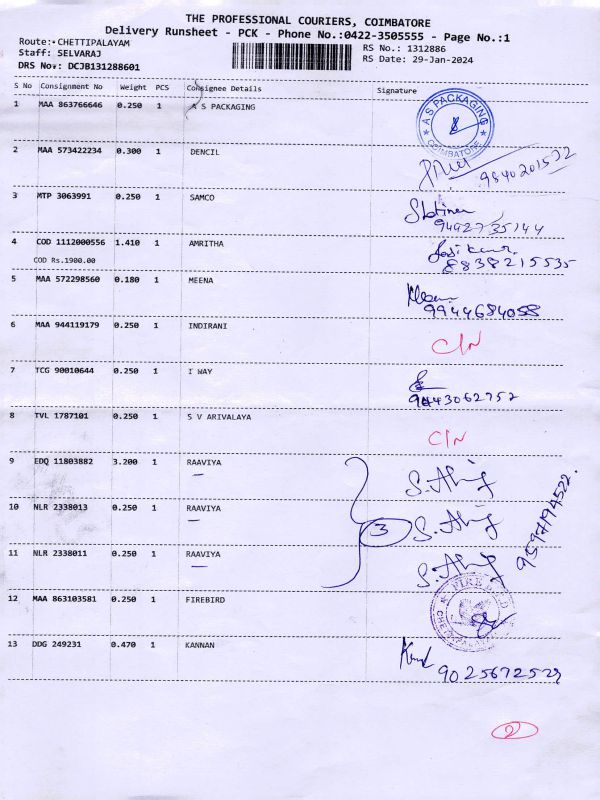 THE PROFESSIONAL COURIERS, COIMBATORE
Delivery Runsheet - PCK - Phone No.:0422-3505555 - Page No.:1
Route: CHETTIPALAYAM
Staff: SELVARAJ
DRS No: DCJB131288601
RS No.: 1312886
RS Date: 29-Jan-2024
S No Consignment No Weight PCS Consignee Details Signature
1 MAA 863766646 0.250 1 A S PACKAGING
A S PACKAGING
COIMBATORE
2 MAA 573422234 0.300 1 DENCIL
9840201532
3 MTP 3063991 0.250 1 SAMCO
9492735144
4 COD 1112000556 1.410 1 AMRITHA
COD Rs.1900.00
8838215535
5 MAA 572298560 0.180 1 MEENA
9944684058
6 MAA 944119179 0.250 1 INDIRANI C/N
7 TCG 90010644 0.250 1 I WAY
9443062752
8 TVL 1787101 0.250 1 S V ARIVALAYA C/N
9 EDQ 11803882 3.200 1 RAAVIYA
10 NLR 2338013 0.250 1 RAAVIYA
3
11 NLR 2338011 0.250 1 RAAVIYA
12 MAA 863103581 0.250 1 FIREBIRD
13 DDG 249231 0.470 1 KANNAN
2